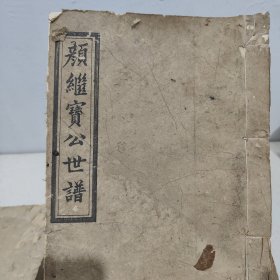 顏繼寶公世譜